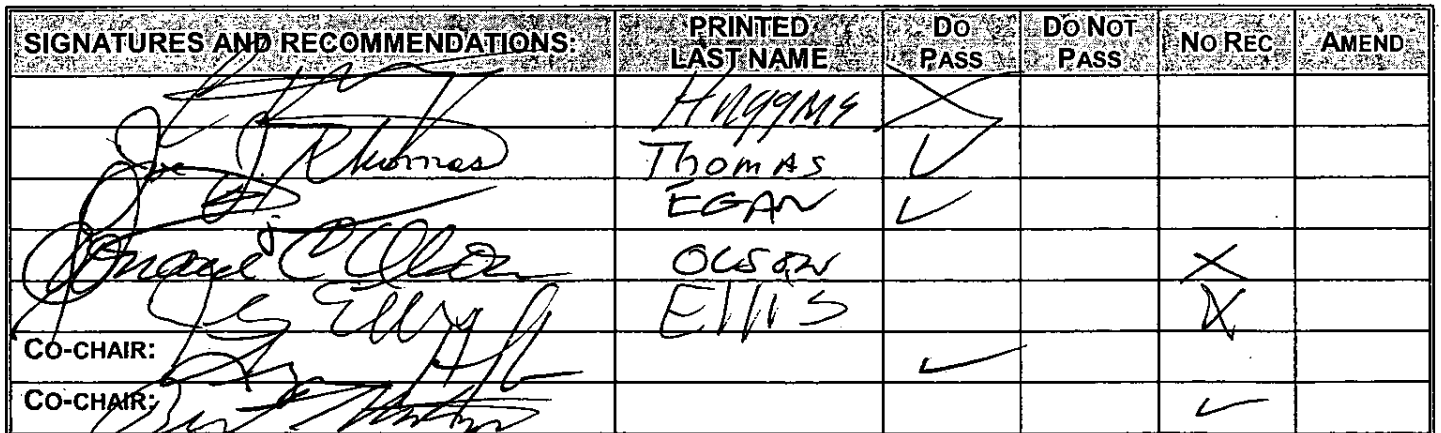 SIGNATURES AND RECOMMENDATIONS: PRINTED LAST NAME DO PASS DO NOT PASS NO REC AMEND
Huggins X
Thomas Thomas ✓
EGAN ✓
Donald C Olson OLSON X
Ellis X
CO-CHAIR: ✓
CO-CHAIR: ✓